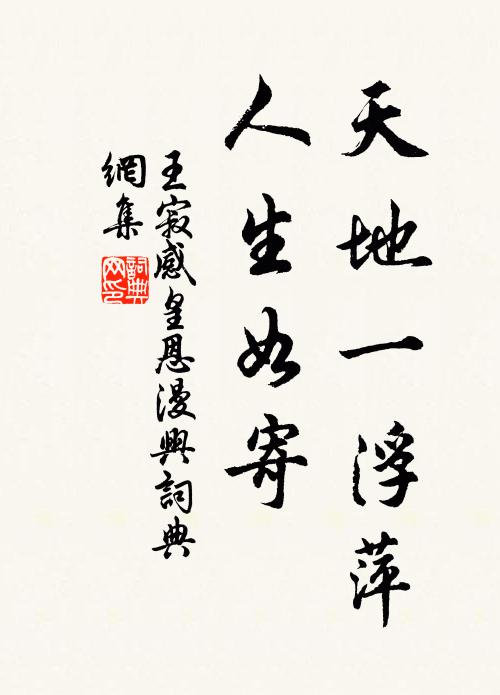 天地一浮萍
人生如寄
王寂感皇恩漫興詞典
網集
詞典
网印